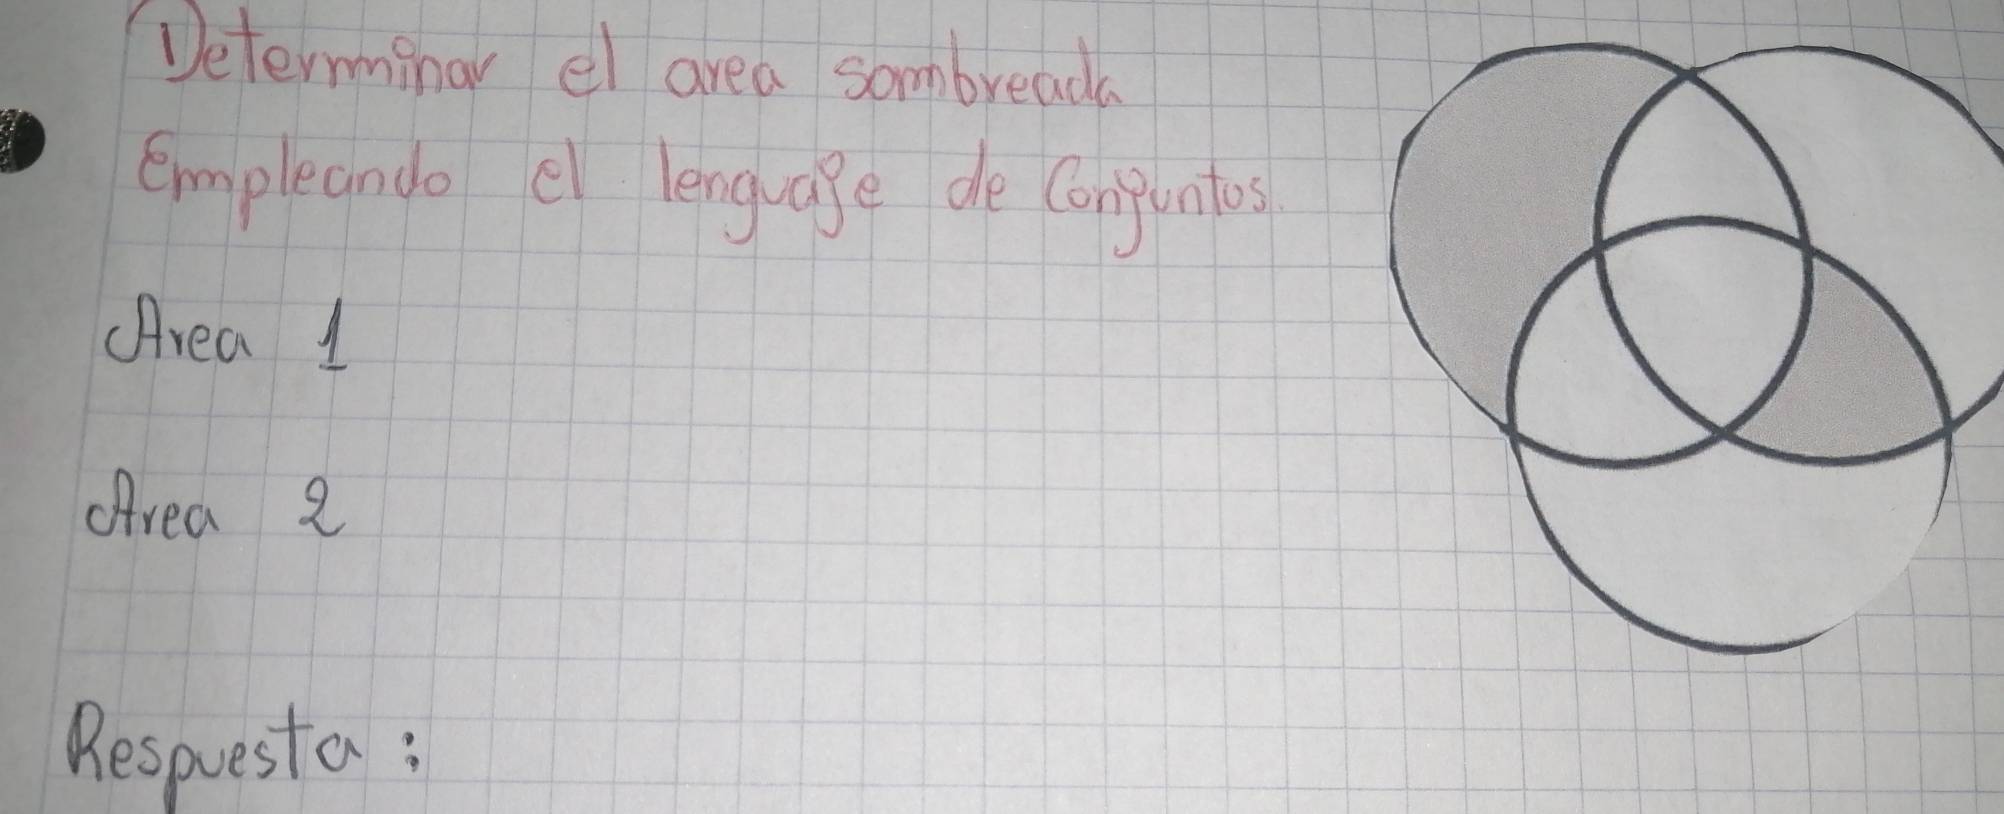 Determinar el area sombreada
Empleando el lenguaje de Conjuntos.
Area 1
Area 2
Respuesta :